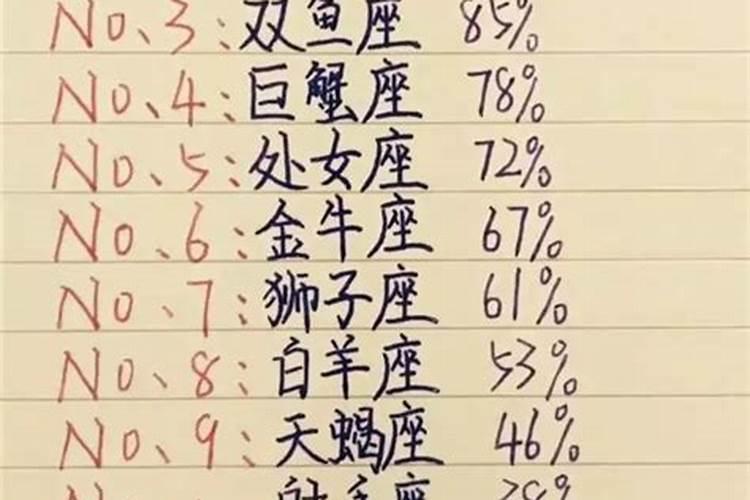 No、3：双鱼座 85%
No、4：巨蟹座 78%
No、5：处女座 72%
No、6：金牛座 67%
No、7：狮子座 61%
No、8：白羊座 53%
No、9：天蝎座 46%